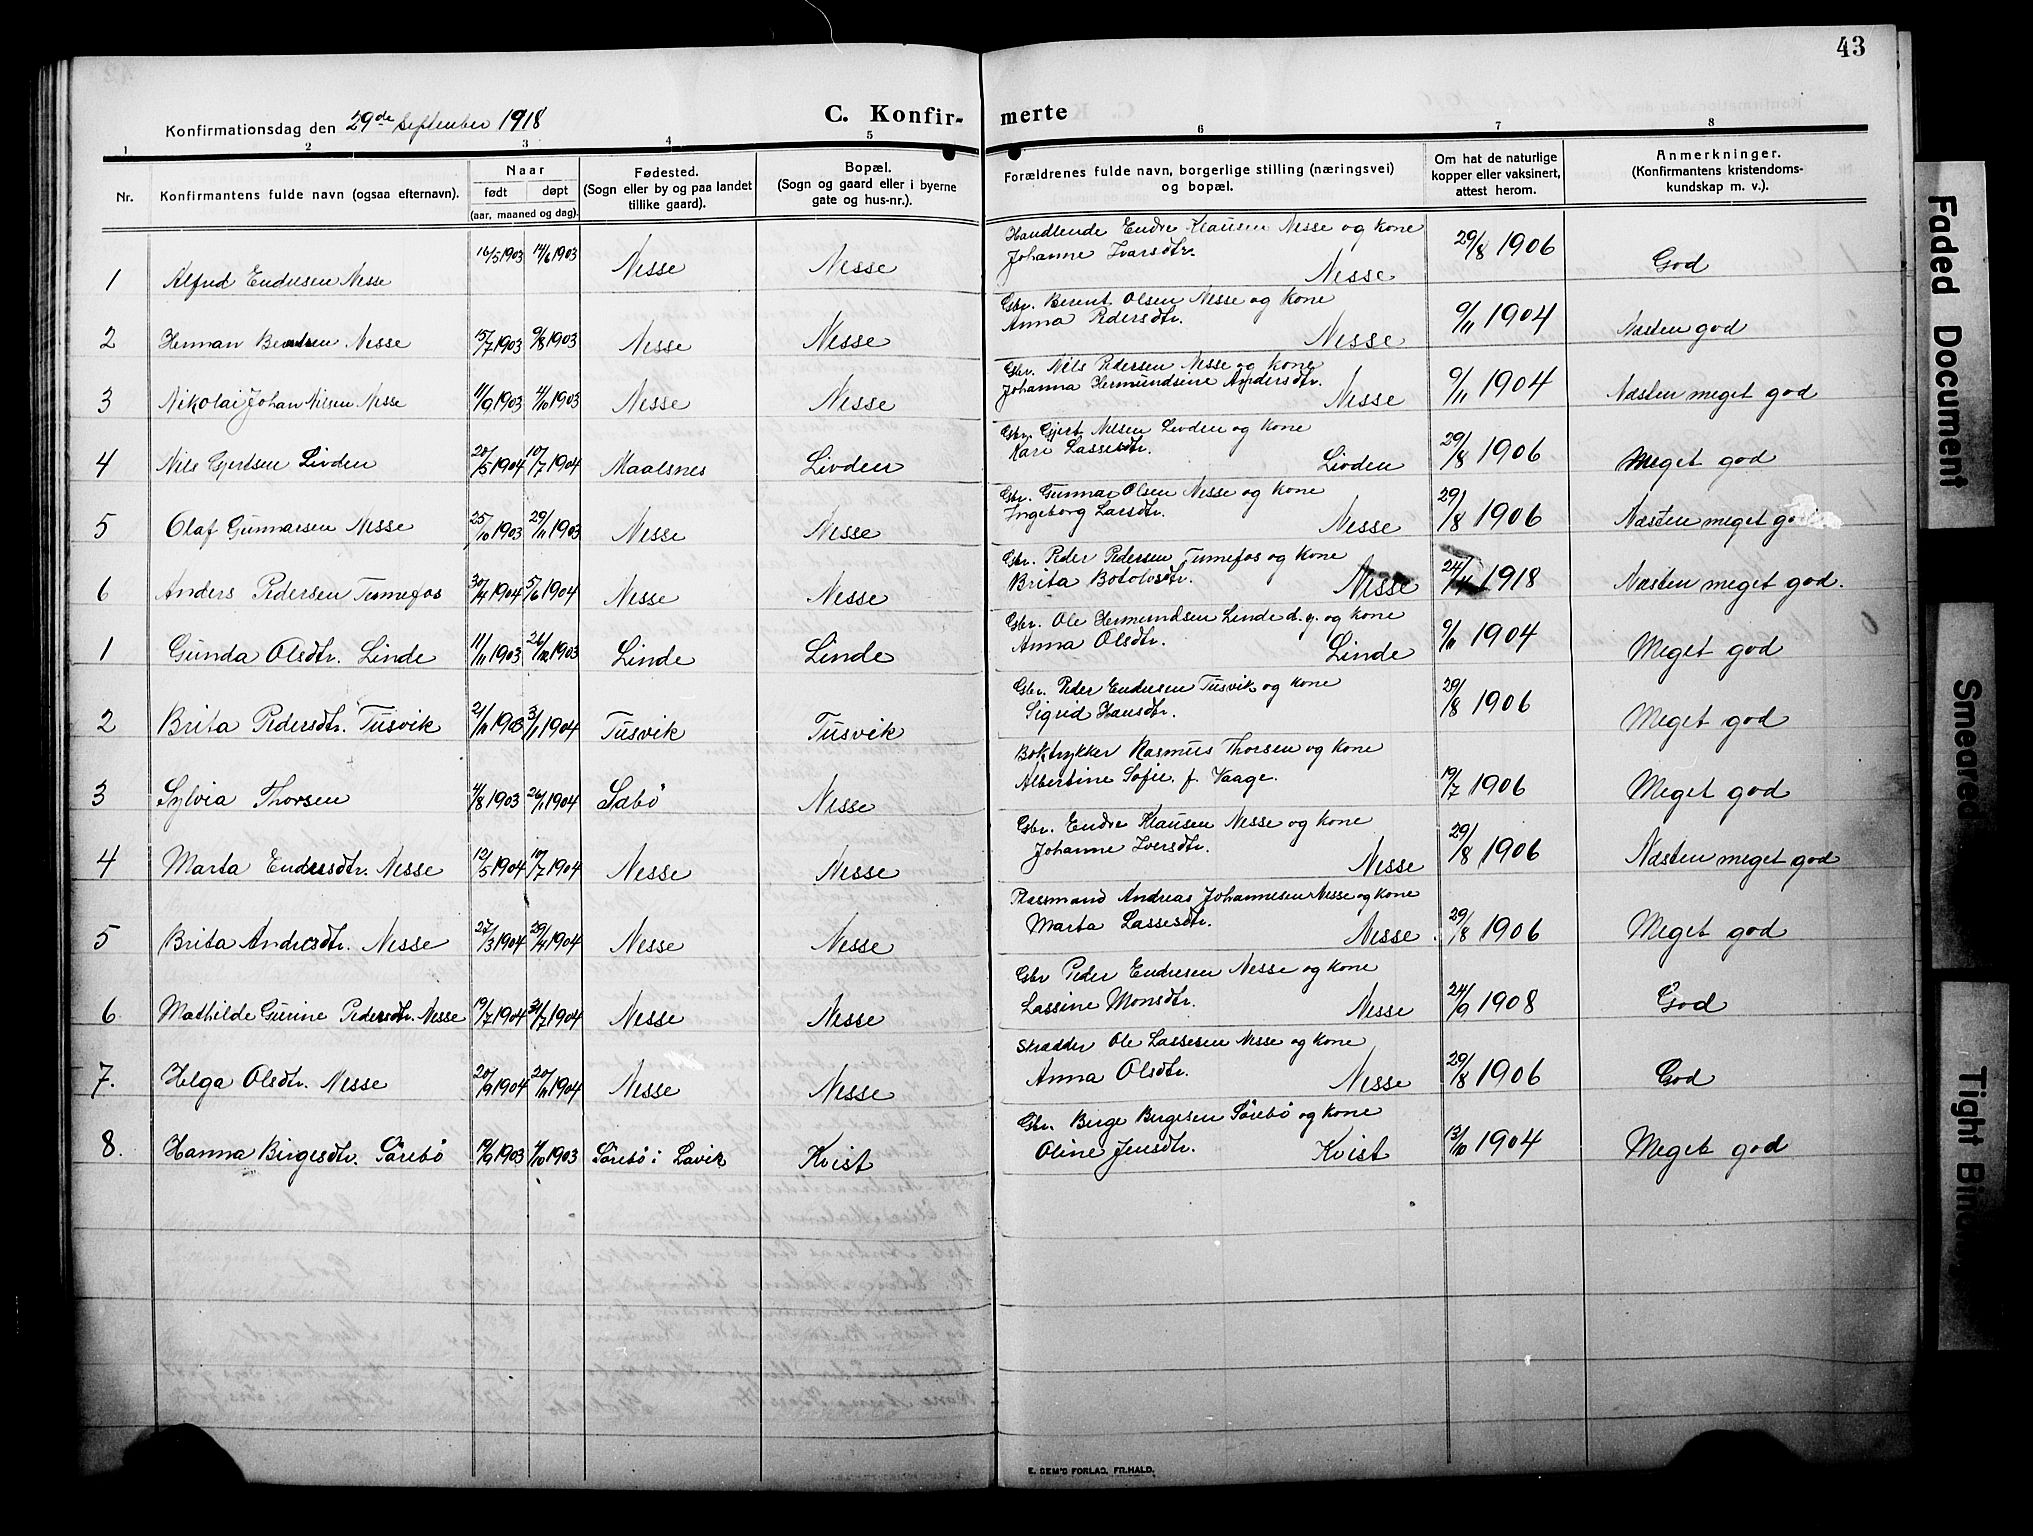 43
Konfirmationsdag den 29de September 1918
C. Konfir-merte
1 2 3 4 5 6 7 8
Nr. Konfirmantens fulde navn (ogsaa efternavn). Naar født døpt (aar, maaned og dag). Fødested. (Sogn eller by og paa landet tillike gaard). Bopæl. (Sogn og gaard eller i byerne gate og hus-nr.). Forældrenes fulde navn, borgerlige stilling (næringsvei) og bopæl. Om hat de naturlige kopper eller vaksinert, attest herom. Anmerkninger. (Konfirmantens kristendoms-kundskap m. v.).
1 Alfred Endresen Nesse 16/5 1903 14/6 1903 Nesse Nesse Handlende Endre Klausen Nesse og kone Johanne Ivarsdtr. Nesse 29/8 1906 God
2 Herman Berntsen Nesse 15/7 1903 9/8 1903 Nesse Nesse Gbr. Berent Olsen Nesse og kone Anna Pedersdtr. Nesse 9/11 1904 Næsten god
3 Nikolai Johan Nilsen Nesse 11/9 1903 4/10 1903 Nesse Nesse Gbr. Nils Pedersen Nesse og kone Johanna Hermundsine Andersdtr. Nesse 9/11 1904 Næsten meget god
4 Nils Gjertsen Livden 20/5 1904 10/7 1904 Maalsnes Livden Gbr. Gjert Nilsen Livden og kone Kari Lassesdtr. Livden 29/8 1906 Meget god
5 Olaf Gunnarsen Nesse 25/10 1903 29/11 1903 Nesse Nesse Gbr. Gunnar Olsen Nesse og kone Ingeborg Larsdtr. Nesse 29/8 1906 Næsten meget god
6 Anders Pedersen Tunnefos 30/4 1904 5/6 1904 Nesse Nesse Gbr. Peder Pedersen Tunnefos og kone Brita Botolvsdtr. Nesse 1918 Næsten meget god.
1 Gunda Olsdtr. Linde 11/11 1903 26/12 1903 Linde Linde Gbr. Ole Hermundsen Linde d.y. og kone Anna Olsdtr. Linde 9/11 1904 Meget god
2 Brita Pedersdtr. Tusvik 21/11 1903 3/1 1904 Tusvik Tusvik Gbr. Peder Endresen Tusvik og kone Sigrid Hansdtr. 29/8 1906 Meget god
3 Sylvia Thorsen 4/8 1903 26/1 1904 Sæbö Nesse Boktrykker Rasmus Thorsen og kone Albertine Sofie f. Vaage. 19/7 1906 Meget god
4 Marta Endresdtr. Nesse 12/5 1904 10/7 1904 Nesse Nesse Gbr. Endre Klausen Nesse og kone Johanne Iversdtr. Nesse 29/8 1906 Næsten meget god
5 Brita Andresdtr. Nesse 27/3 1904 29/4 1904 Nesse Nesse Plassmand Andreas Johannesen Nesse og kone Marta Lassesdtr. Nesse. 29/8 1906 Meget god
6 Mathilde Gurine Pedersdtr. Nesse 19/7 1904 31/7 1904 Nesse Nesse Gbr Peder Endresen Nesse og kone Lassine Monsdtr. Nesse 24/9 1908 God
7. Helga Olsdtr. Nesse 20/9 1904 20/11 1904 Nesse Nesse Skrædder Ole Lassesen Nesse og kone Anna Olsdtr. Nesse 29/8 1906 God
8. Hanna Birgesdtr. Sörebö 19/9 1903 4/10 1903 Sörebö i Lavik Kvist Gbr. Birge Birgesen Sörebö og kone Oline Jensdtr. Kvist 13/10 1904 Meget god
E. SEM'S FORLAG, FR.HALD.
Faded Document
Smeared
Tight